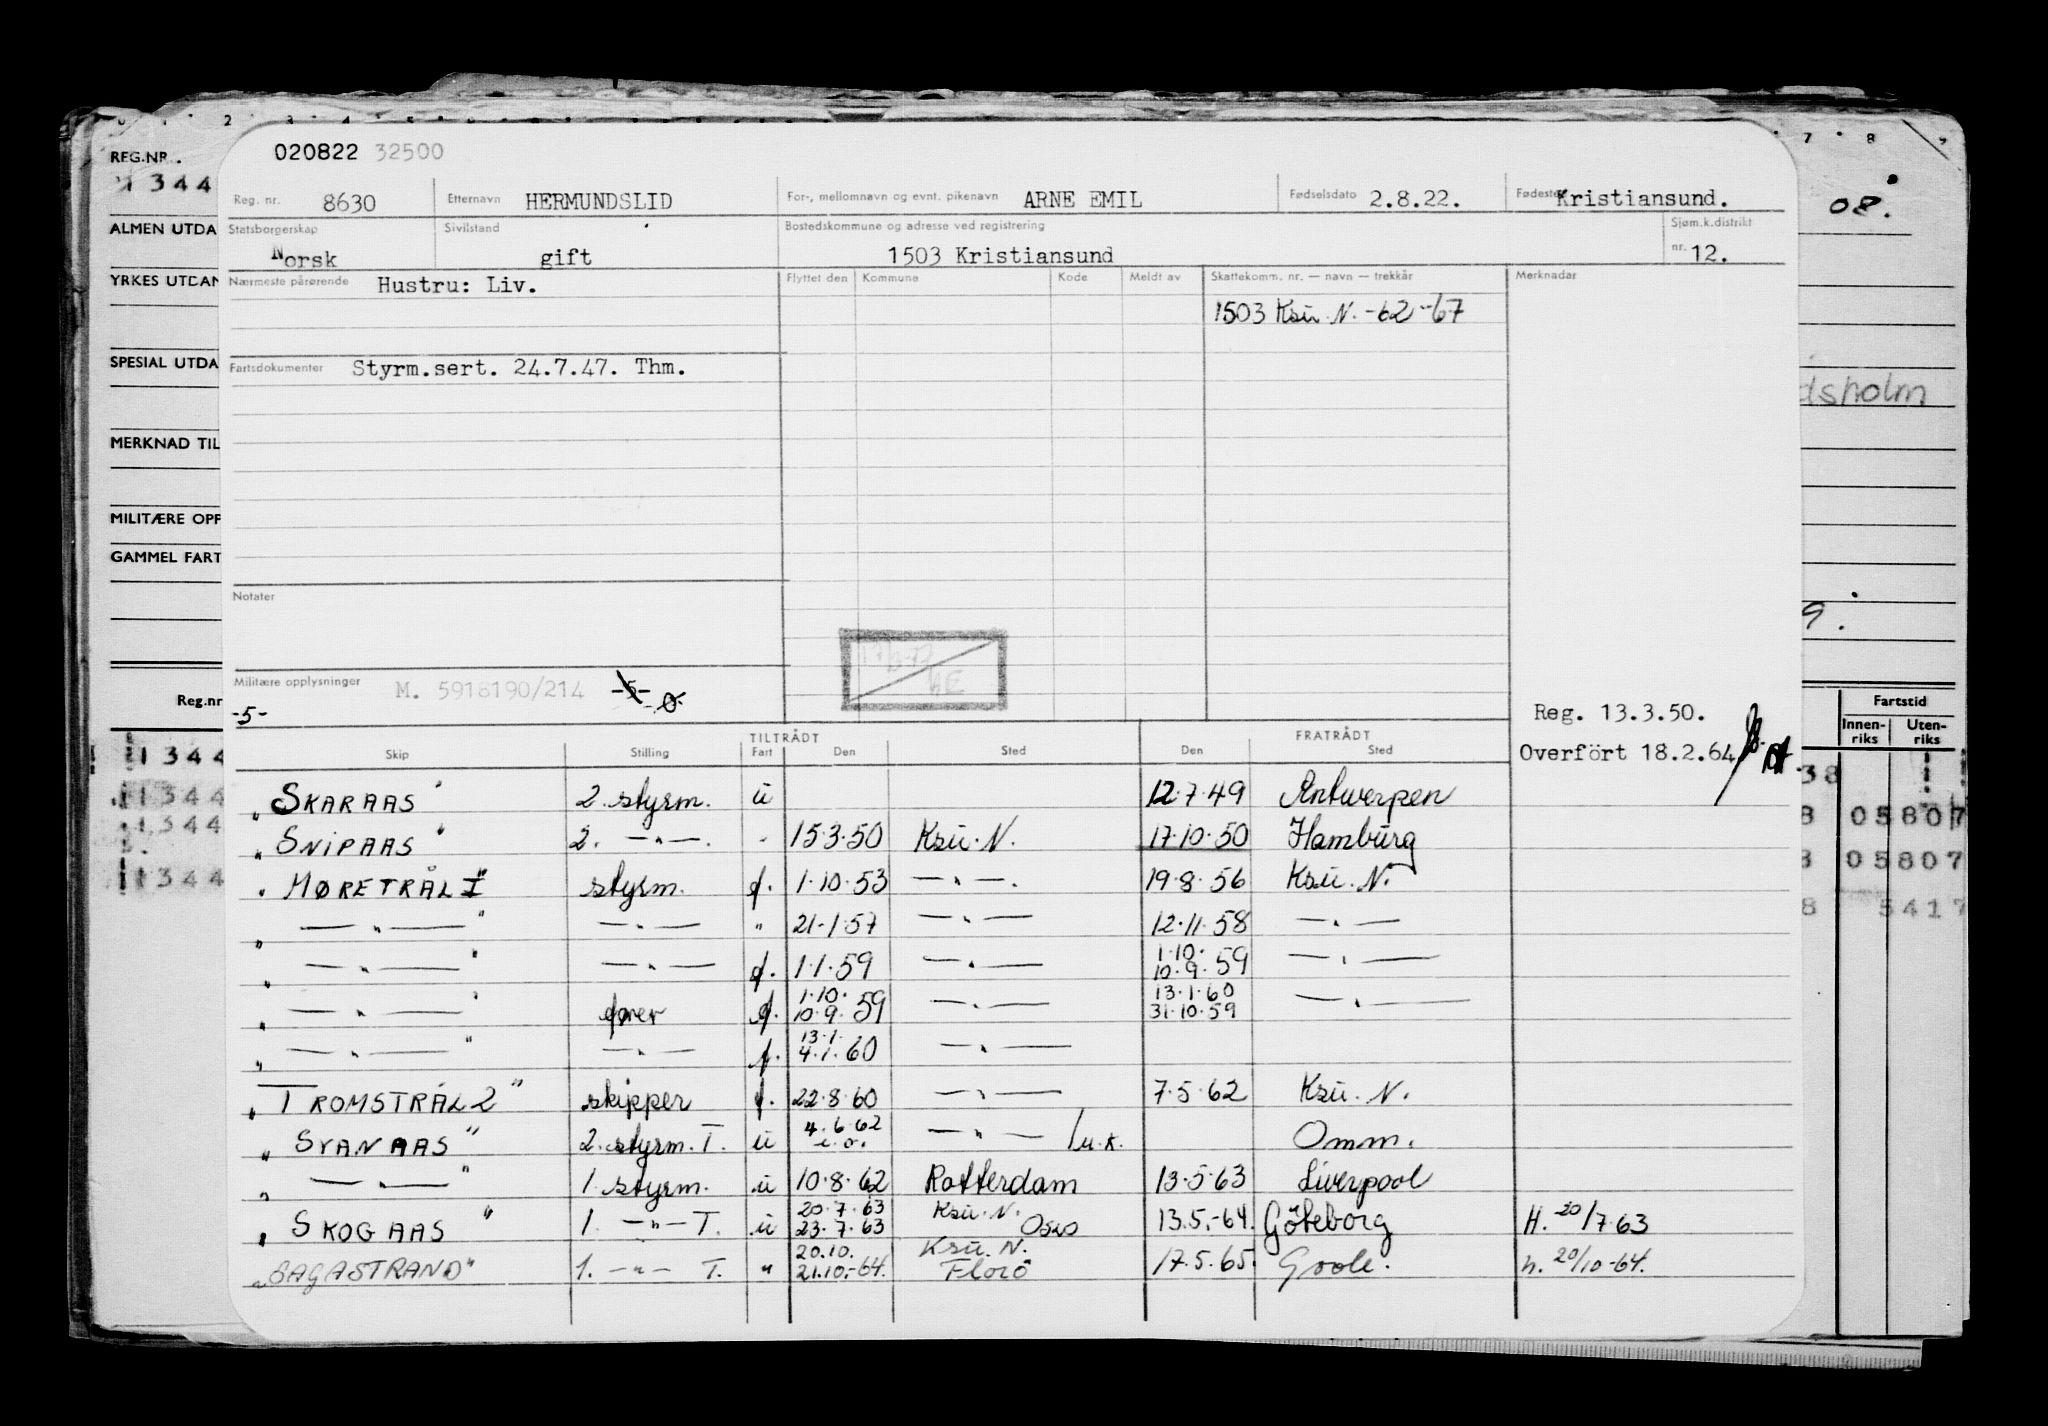 020822 32500
Reg. nr. 8630 Etternavn HERMUNDSLID For-, mellomnavn og evnt. pikenavn ARNE EMIL Fødselsdato 2.8.22. Fødested Kristiansund.
Statsborgerskap Norsk Sivilstand gift Bostedskommune og adresse ved registrering 1503 Kristiansund Sjøm.k.distrikt nr. 12.
Nærmeste pårørende Hustru: Liv. Flyttet den Kommune Kode Meldt av Skattekomm. nr. — navn — trekkår Merknader
1503 Ksu. N. -62 -67
Fartsdokumenter Styrm.sert. 24.7.47. Thm.
Notater
Militære opplysninger M. 5918190/214 -5-
-5-
Reg. 13.3.50.
Overført 18.2.64
TILTRÅDT FRATRÅDT
Skip Stilling Fart Den Sted Den Sted
"SKARAAS" 2. styrm. u 12.7.49 Antwerpen
"SNIPAAS" 2. —"—. " 15.3.50 Ksu. N. 17.10.50 Hamburg
"MØRETRÅL I" styrm. f. 1.10.53 —"—. 19.8.56 Ksu. N.
" —"— " —"— " 21.1.57 —"— 12.11.58 —"—
" —"— " —"— f. 1.1.59 —"— 1.10. 10.9.59 —"—
" —"— " fører f. 1.10. 10.9.59 —"— 13.1.60 31.10.59 —"—
" —"— " —"— f. 13.1. 4.1.60 —"—
"TROMSTRÅL 2" skipper f. 22.8.60 —"— 7.5.62 Ksu. N.
"SVANAAS" 2. styrm. T. u 4.6.62 —"— /u.k. Omm.
" —"— " 1. styrm. u 10.8.62 Rotterdam 13.5.63 Liverpool
"SKOGAAS" 1. —"— T. u 20.7.63 23.7.63 Ksu. N. Oslo 13.5.-64. Göteborg H. 20/7.63
"SAGASTRAND" 1. —"— T. " 20.10. 21.10.-64. Ksu. N. Florö 17.5.65. Goole. h. 20/10-64.
REG.NR.
1344
ALMEN UTDA
YRKES UTDAN
SPESIAL UTDA
MERKNAD TIL
MILITÆRE OPP
GAMMEL FART
Reg.nr
1344
1344
1344
1344
08.
dsholm
9.
Fartstid
Innen-riks Uten-riks
38
8 05807
8 05807
8 5417